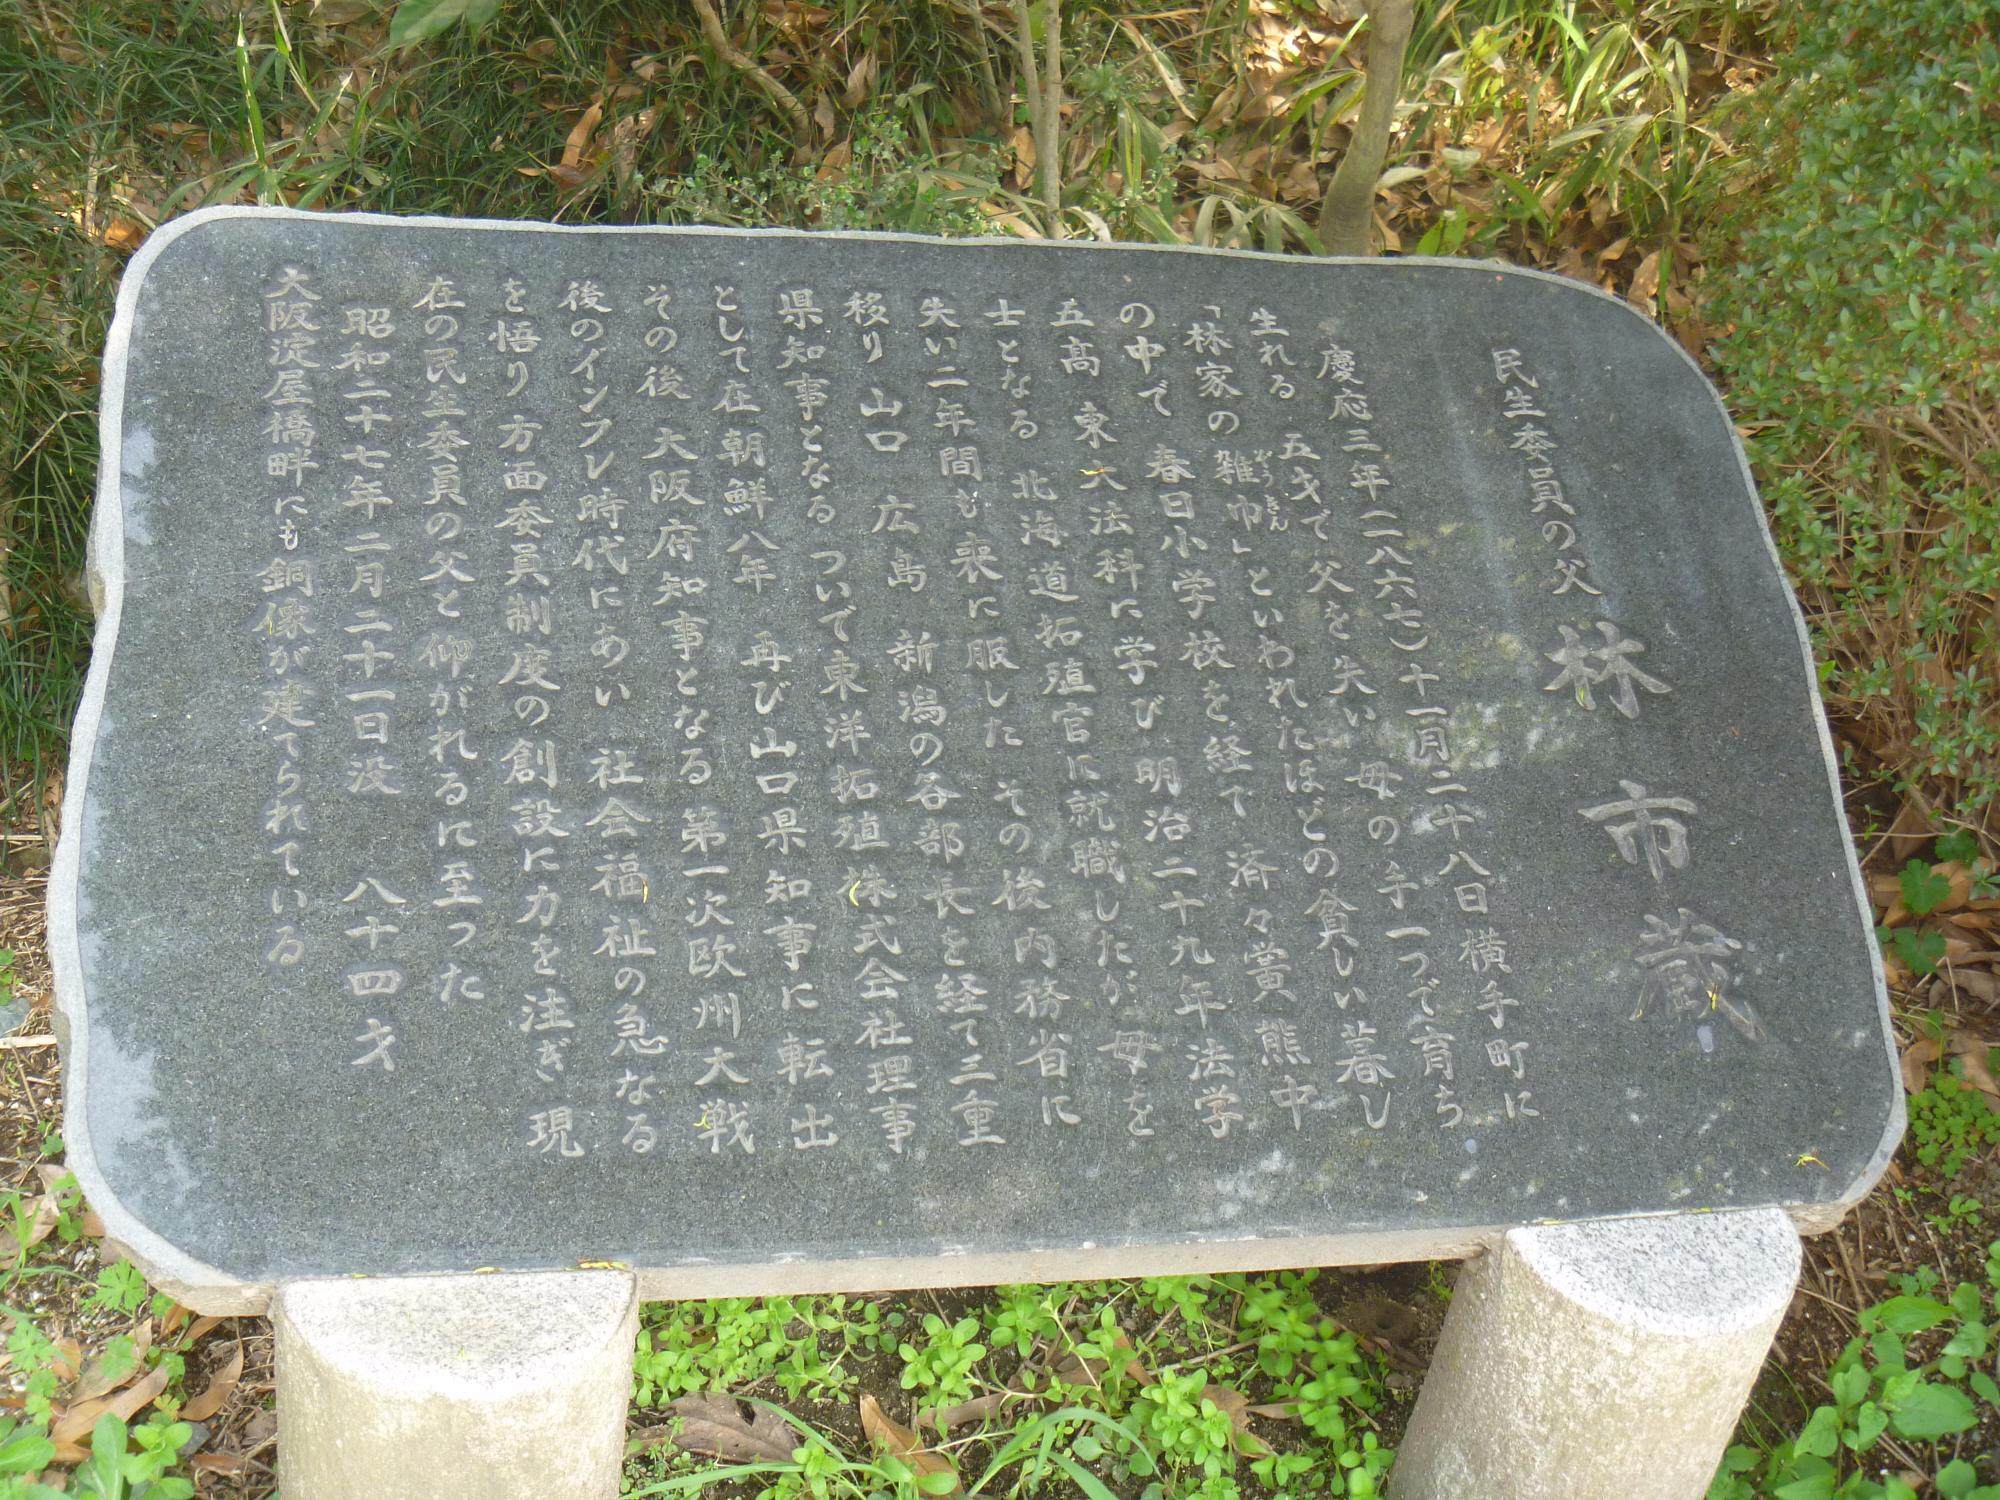 民生委員の父 林市蔵
慶応三年(一八六七)十一月二十八日横手町に
生れる 五才で父を失い母の手一つで育ち
「林家の雑巾」といわれたほどの貧しい暮し
ぞうきん
の中で 春日小学校を経て 済々黌 熊中
五高 東大法科に学び 明治二十九年法学
士となる 北海道拓殖官に就職したが 母を
失い二年間も喪に服した その後内務省に
移り 山口 広島 新潟の各部長を経て三重
県知事となる ついで東洋拓殖株式会社理事
として在朝鮮八年 再び山口県知事に転出
その後 大阪府知事となる 第一次欧州大戦
後のインフレ時代にあい 社会福祉の急なる
を悟り 方面委員制度の創設に力を注ぎ 現
在の民生委員の父と仰がれるに至った
昭和二十七年二月二十一日没 八十四才
大阪淀屋橋畔にも銅像が建てられている